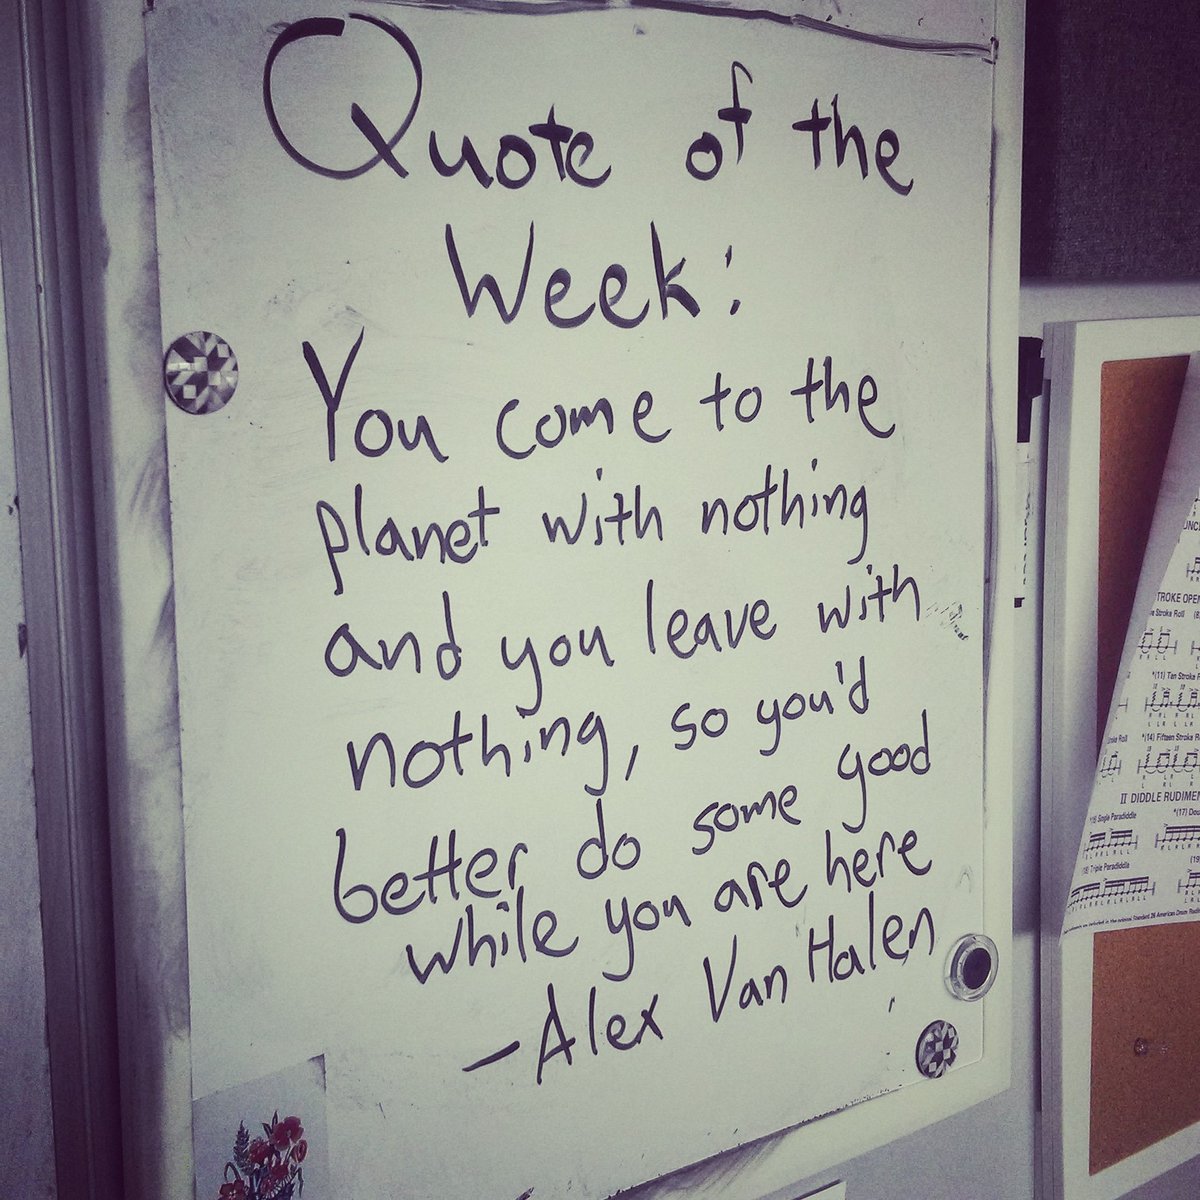 Quote of the
Week:
You come to the
planet with nothing
and you leave with
nothing, so you'd
better do some good
while you are here
—Alex Van Halen
TROKE OPEN
Stroke Roll
*(11) Ten Stroke R
Stroke Roll
*(14) Fifteen Stroke R
II DIDDLE RUDIMEN
Single Paradiddle
*(17) Dou
(18) Triple Paradiddle
(19)